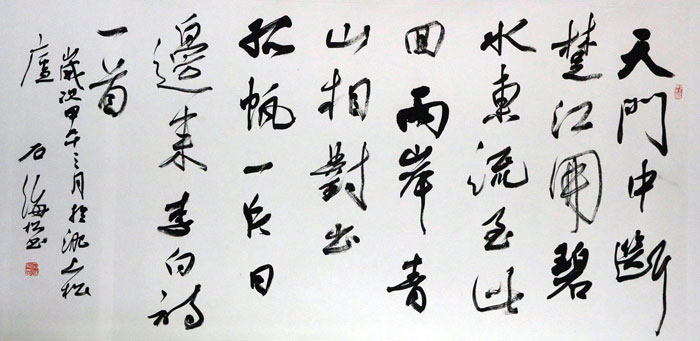 天門中斷
楚江開碧
水東流至此
回兩岸青
山相對出
孤帆一片日
邊來李白詩
一首
歲次甲午三月於洮上松
廬
石海松書